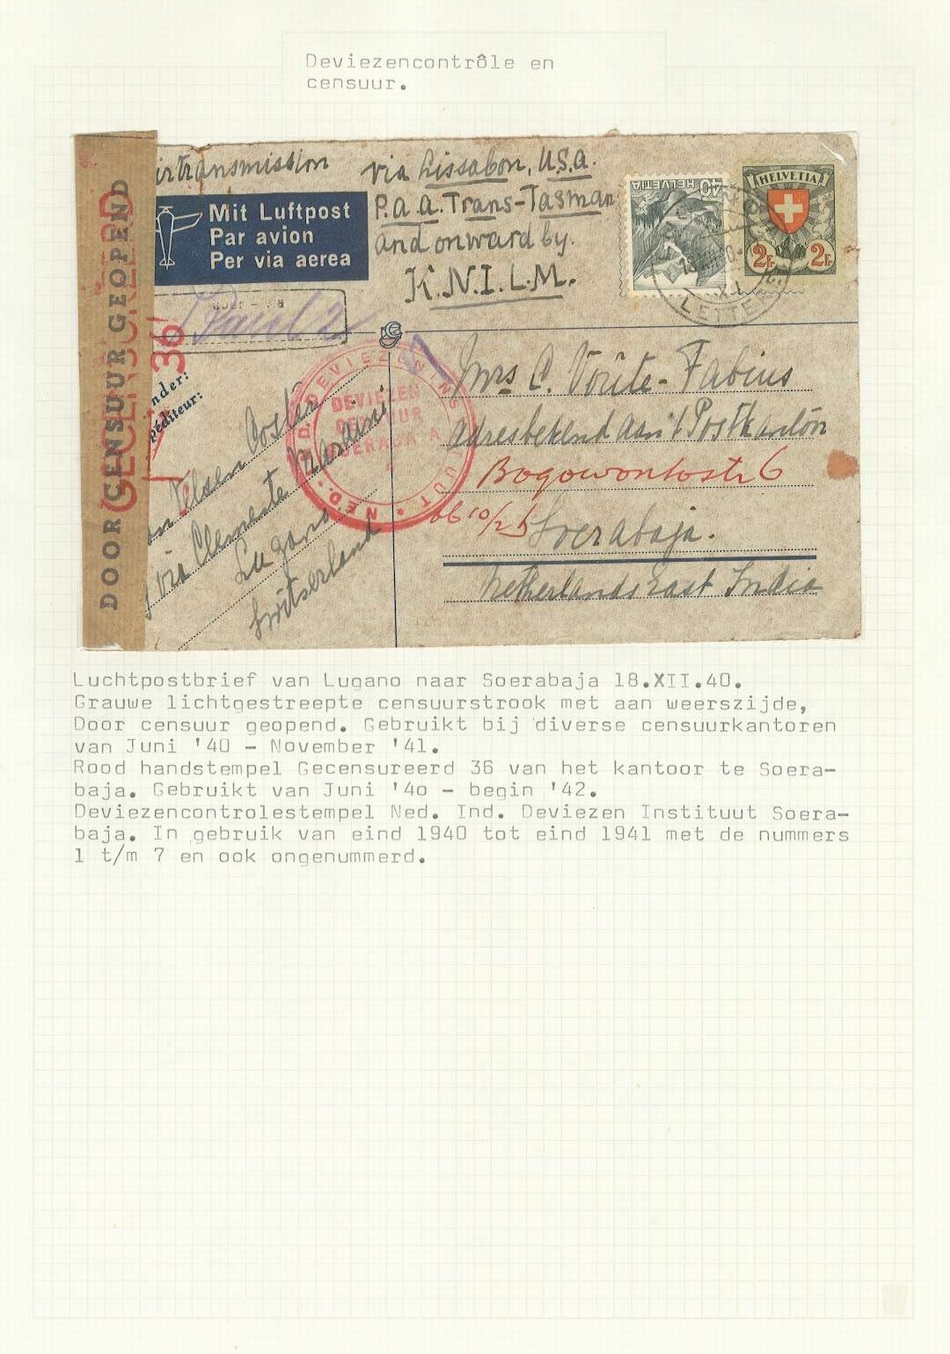 Deviezencontrôle en
censuur.
DOOR CENSUUR GEOPEND
36
irtransmission
via Lissabon, U.S.A.
P.a.a. Trans-Tasman
and onward by.
K.N.I.L.M.
Mit Luftpost
Par avion
Per via aerea
HELVETIA
40
HELVETIA
2 Fr 2 Fr
LETTERE
nder:
péditeur:
via Clemente Maraini
Lugano
Switserland
DEVIEZEN
Mrs C. Voûte-Fabius
adres bekend aan 't Postkantôn
Bogowontostr 6
Soerabaja.
Netherlands East India
Luchtpostbrief van Lugano naar Soerabaja 18.XII.40.
Grauwe lichtgestreepte censuurstrook met aan weerszijde,
Door censuur geopend. Gebruikt bij diverse censuurkantoren
van Juni '40 - November '41.
Rood handstempel Gecensureerd 36 van het kantoor te Soera-
baja. Gebruikt van Juni '4o - begin '42.
Deviezencontrolestempel Ned. Ind. Deviezen Instituut Soera-
baja. In gebruik van eind 1940 tot eind 1941 met de nummers
1 t/m 7 en ook ongenummerd.